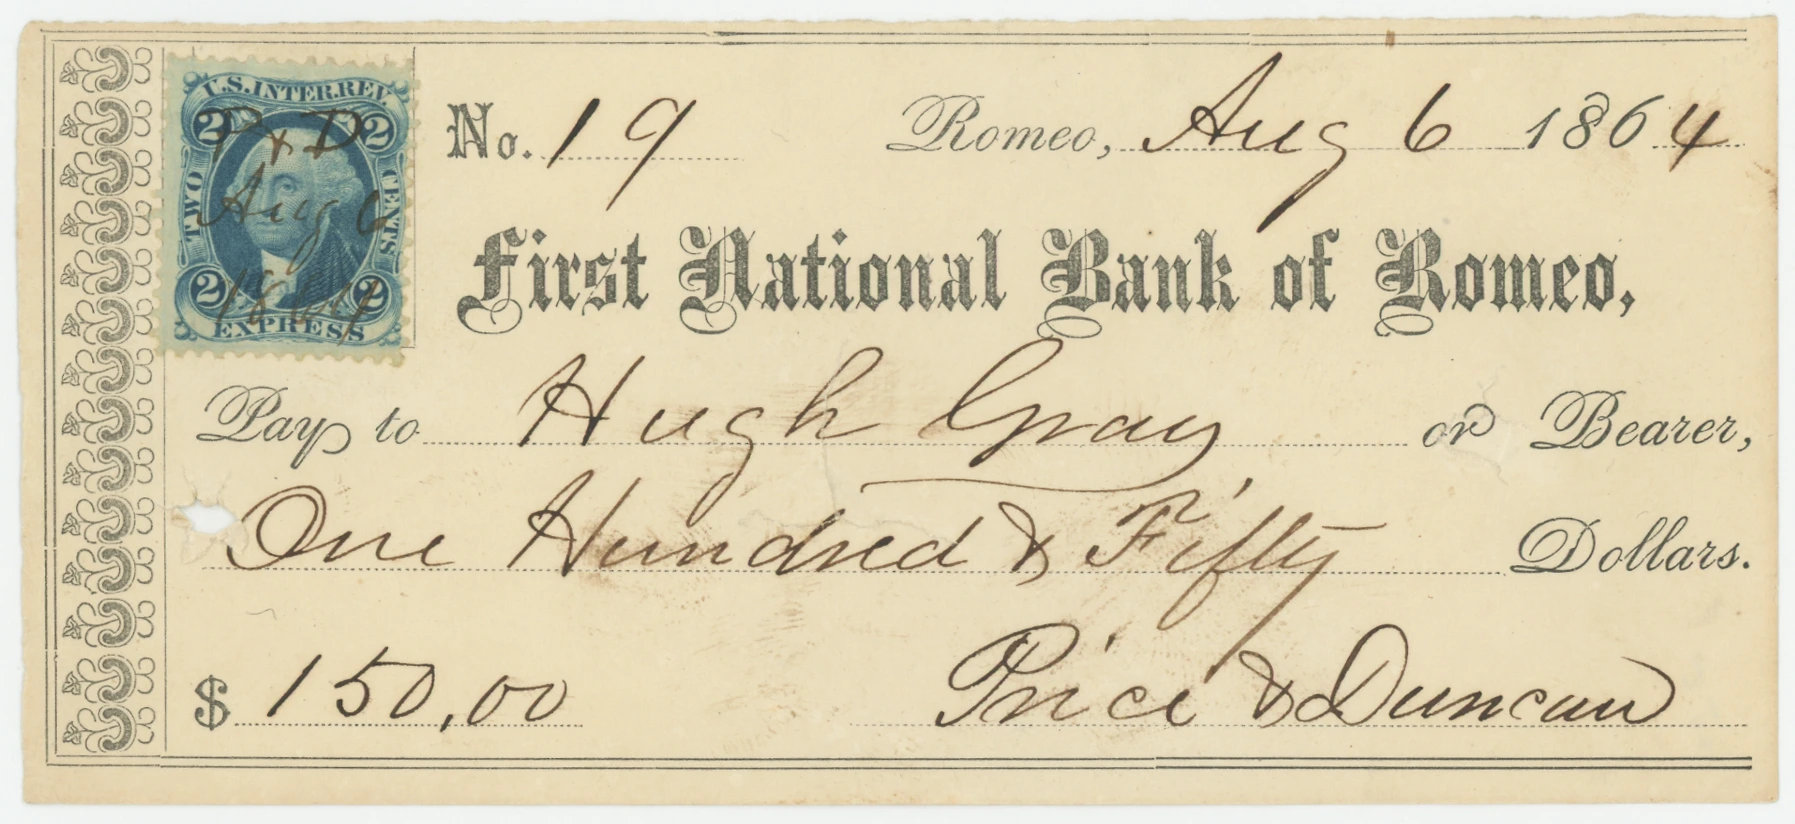 U.S. INTER. REV.
2 2
P & D
TWO CENTS
Aug 6
1864
2 2
EXPRESS
No. 19
Romeo, Aug 6 1864
First National Bank of Romeo,
Pay to Hugh Gray or Bearer,
One Hundred & Fifty Dollars.
$ 150.00
Price & Duncan